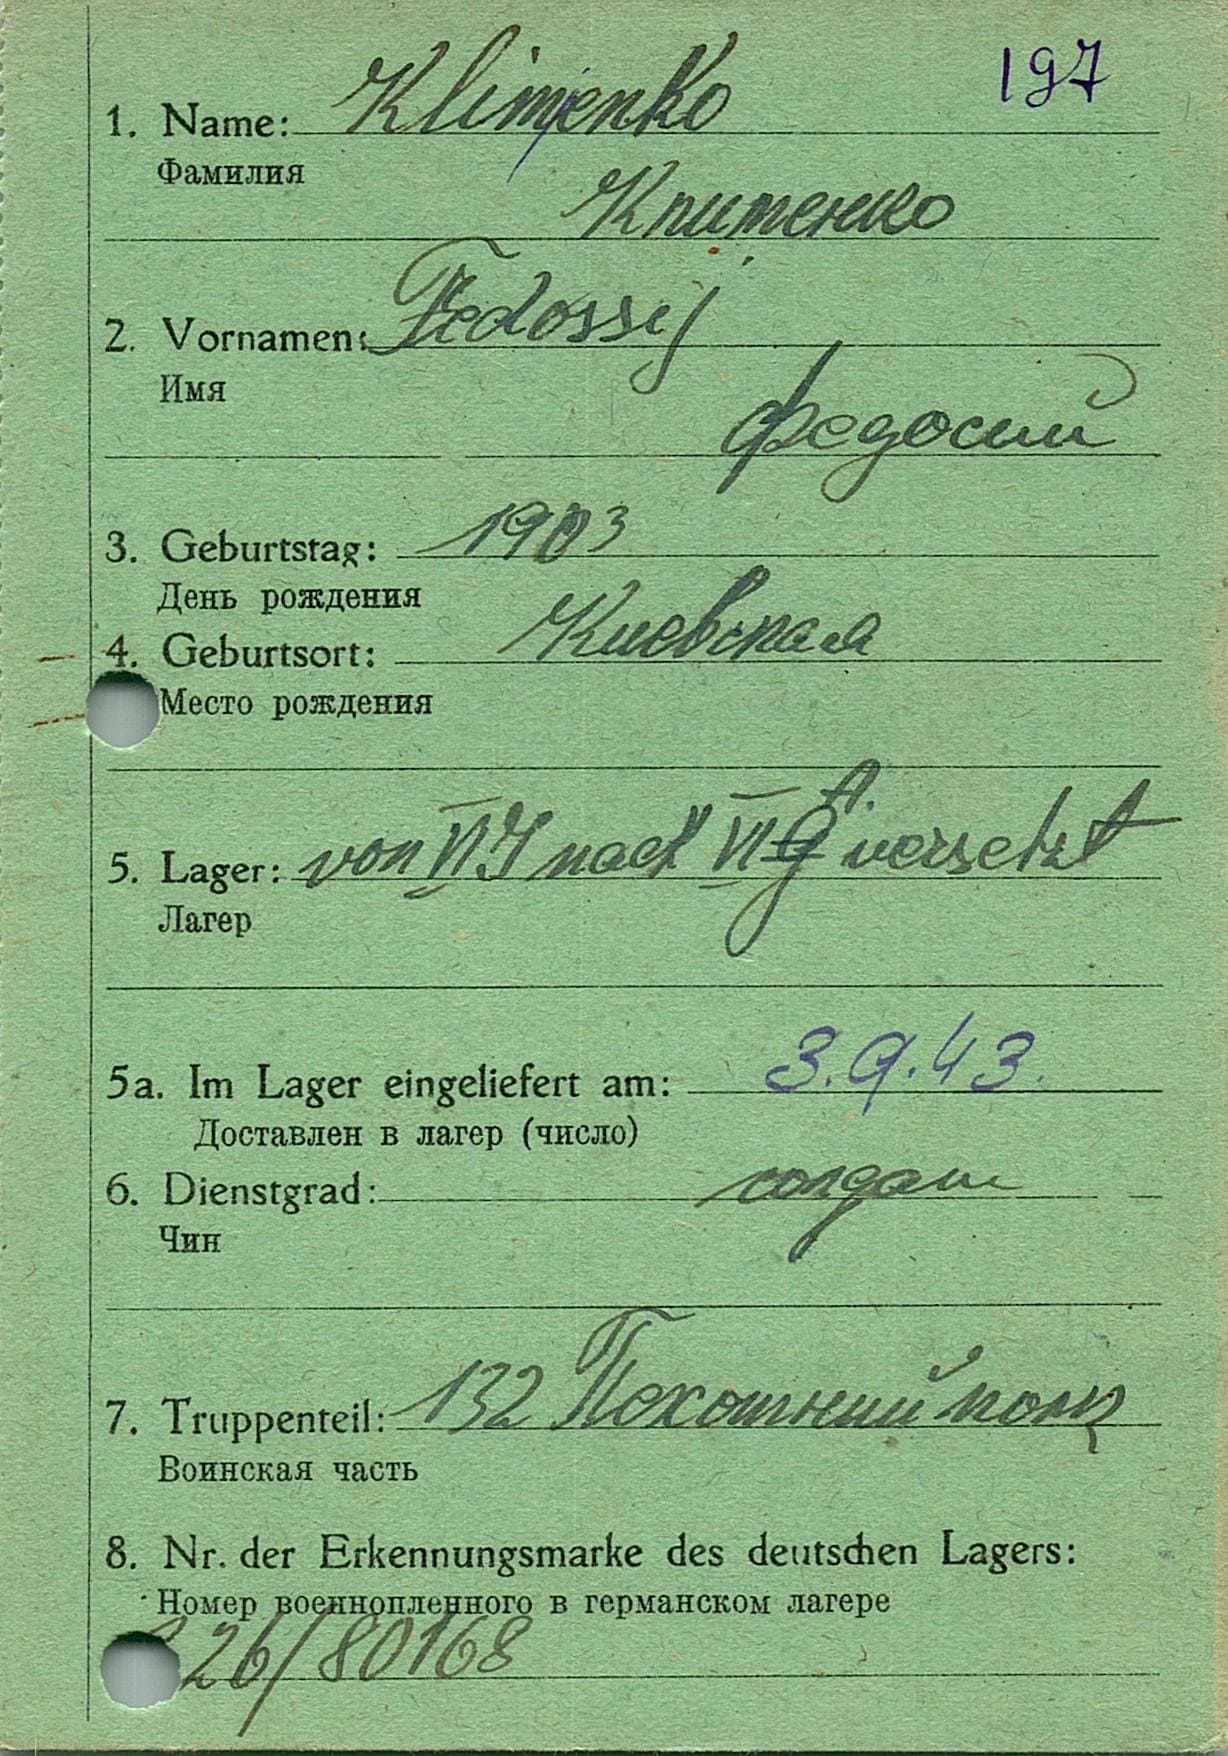 197
1. Name: Klimenko
Фамилия
Клименко
2. Vornamen: Fedossij
Имя
Федосий
3. Geburtstag: 1903
День рождения
4. Geburtsort: Киевская
Место рождения
5. Lager: von VI J nach VI G A. versetzt
Лагер
5a. Im Lager eingeliefert am: 3.9.43.
Доставлен в лагер (число)
6. Dienstgrad: солдат
Чин
7. Truppenteil: 132 Пехотний полк
Воинская часть
8. Nr. der Erkennungsmarke des deutschen Lagers:
Номер военнопленного в германском лагере
26/80168